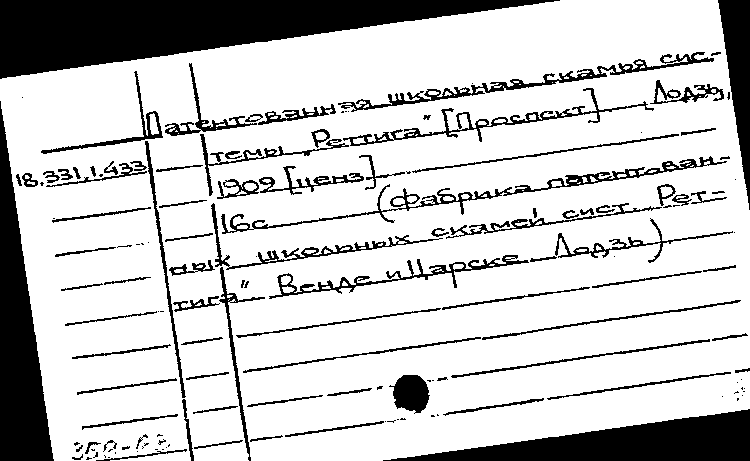 Патентованная школьная скамья сис-
темы „Реттига" [Проспект] Лодзь,
18.331.1.433
1909 [ценз]
16с (Фабрика патентован-
ных школьных скамей сист. Рет-
тига" Венде и Царске. Лодзь)